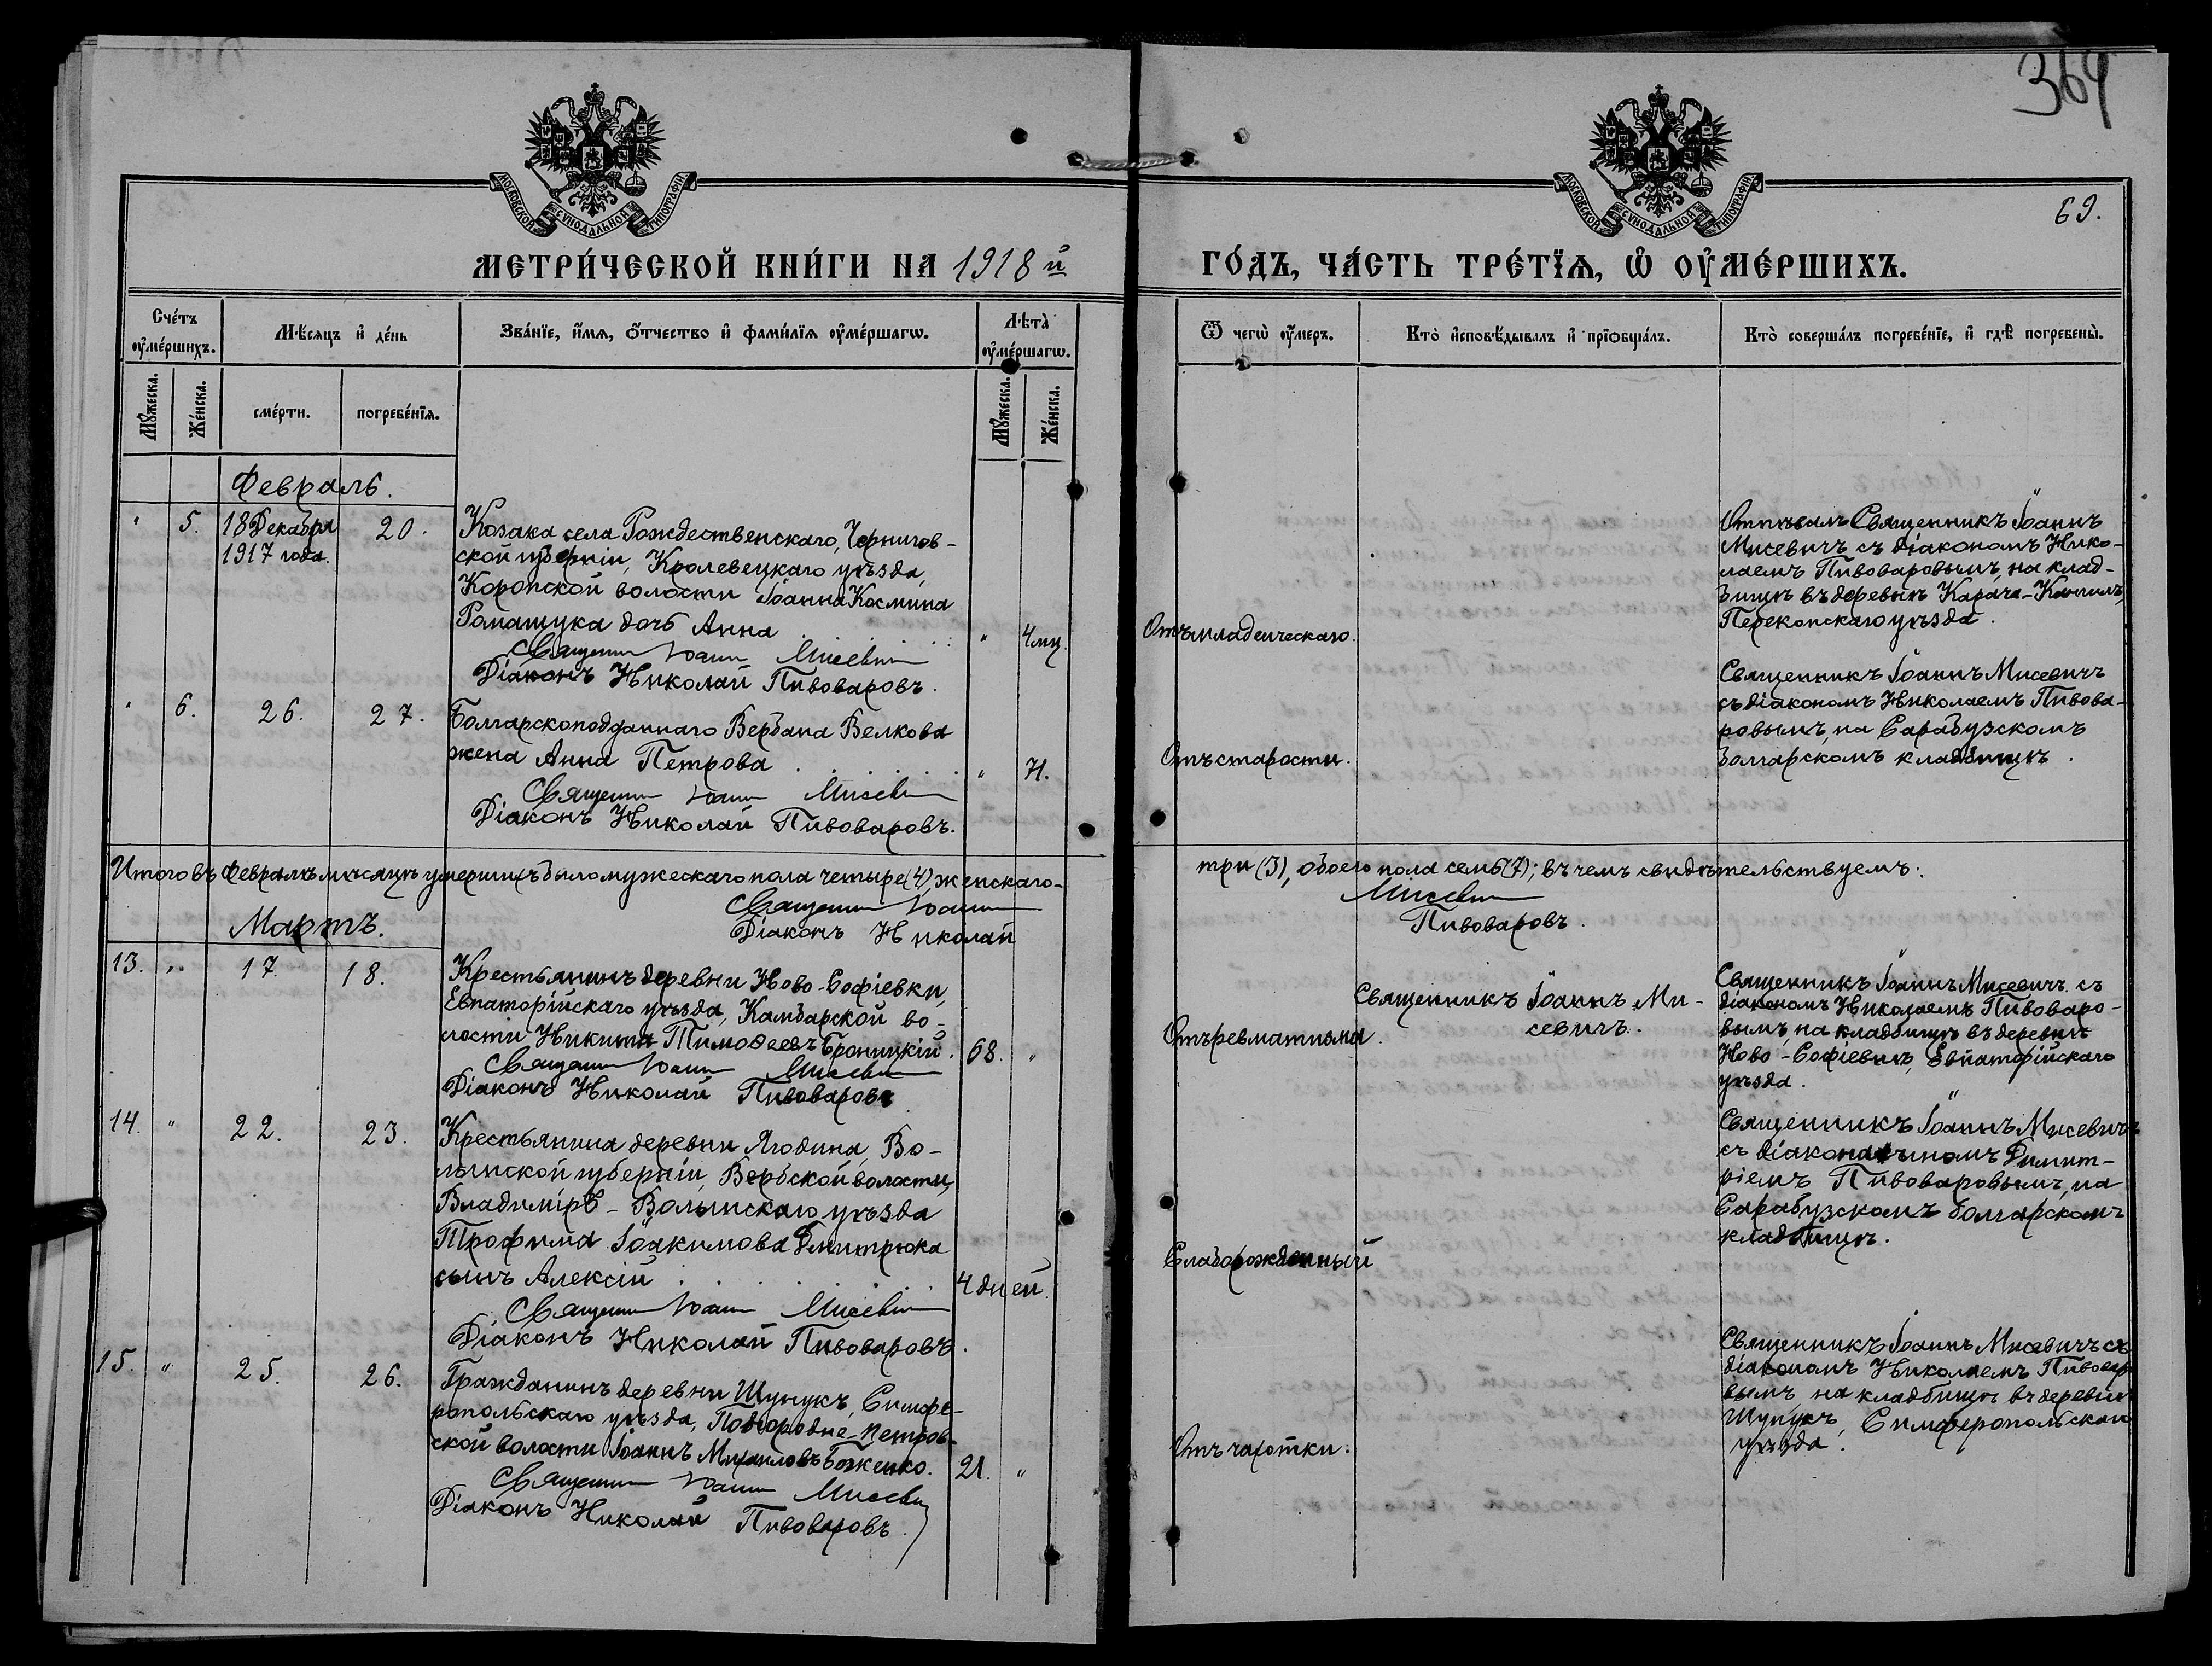 364
МОСКОВСКОЙ СѴНОДАЛЬНОЙ ТИПОГРАФІИ
МОСКОВСКОЙ СѴНОДАЛЬНОЙ ТИПОГРАФІИ
69.
МЕТРИ́ЧЕСКОЙ КНИ́ГИ НА 1918 й
ГО́ДЪ, ЧА́СТЬ ТРЕ́ТЇѦ, Ѡ҆ ОУ҆МЕ́РШИХЪ.
Сче́тъ оу҆ме́ршихъ.
Мѣ́сяцъ и҆ де́нь
Зва́нїе, и҆́мѧ, ѻ҆́тчество и҆ фами́лїѧ оу҆ме́ршагѡ.
Лѣ́та оу҆ме́ршагѡ.
Ѿ чегѡ̀ оу҆́меръ.
Кто̀ и҆сповѣ́дывалъ и҆ прїѡбща́лъ.
Кто̀ соверша́лъ погребе́нїе, и҆ гдѣ̀ погребены̀.
Мꙋ́жеска.
Же́нска.
сме́рти.
погребе́нїѧ.
Мꙋ́жеска.
Же́нска.
Февраль.
" 5. 18 Декабря 20.
1917 года.
Козака села Рождественскаго, Чернигов-
ской губерніи, Кролевецкаго уѣзда,
Коропской волости Іоанна Космина
Ромащука дочь Анна " 4 мц.
Священник Іоанн Мисевич
Діаконъ Николай Пивоваровъ.
Отъ младенческаго.
Отпѣвалъ Священникъ Іоаннъ
Мисевичъ съ діакономъ Нико-
лаемъ Пивоваровымъ, на клад-
бищѣ въ деревнѣ Карача-Кангилъ,
Перекопскаго уѣзда.
" 6. 26. 27.
Болгарскоподданнаго Вербана Велкова
жена Анна Петрова "
Священник Іоанн Мисевич
Діаконъ Николай Пивоваровъ.
Отъ старости.
Священникъ Іоаннъ Мисевичъ
съ діакономъ Николаемъ Пивова-
ровымъ, на Сарабузскомъ
болгарскомъ кладбищѣ.
Итого въ Февралѣ мѣсяцѣ умершихъ было мужескаго пола четыре (4), женскаго-
три (3), обоего пола семь (7); въ чемъ свидѣтельствуемъ:
Священник Іоанн
Мисевич
Діаконъ Николай
Пивоваровъ.
Мартъ.
13. " 17. 18.
Крестьянинъ деревни Ново-Софіевки,
Евпаторійскаго уѣзда, Камбарской во-
лости Никита Тимоѳеевъ Броницкій. 68. "
Священник Іоанн Мисевич
Діаконъ Николай Пивоваровъ
Отъ ревматизма.
Священникъ Іоаннъ Ми-
севичъ.
Священникъ Іоаннъ Мисевичъ съ
діакономъ Николаемъ Пивоваро-
вымъ, на кладбищѣ въ деревнѣ
Ново-Софіевкѣ, Евпаторійскаго
уѣзда.
14. " 22. 23.
Крестьянина деревни Ягодина, Во-
лынской губерніи, Вербской волости,
Владиміръ-Волынскаго уѣзда
Трофима Іоакимова Дмитрюка
сынъ Алексій 4 дней.
Священник Іоанн Мисевич
Діаконъ Николай Пивоваровъ.
Слаборожденный
Священникъ Іоаннъ Мисевичъ
съ Димит-
ріемъ Пивоваровымъ, на
Сарабузскомъ болгарскомъ
кладбищѣ.
15. " 25. 26.
Гражданинъ деревни Шунукъ, Симфе-
ропольскаго уѣзда, Подгородне-Петров-
ской волости Іоаннъ Михаиловъ Боженко. 21. "
Священник Іоанн Мисевич
Діаконъ Николай Пивоваровъ.
Отъ чахотки.
Священникъ Іоаннъ Мисевичъ съ
діакономъ Николаемъ Пивоваро
вымъ на кладбищѣ въ деревнѣ
Шунукъ, Симферопольскаго
уѣзда.